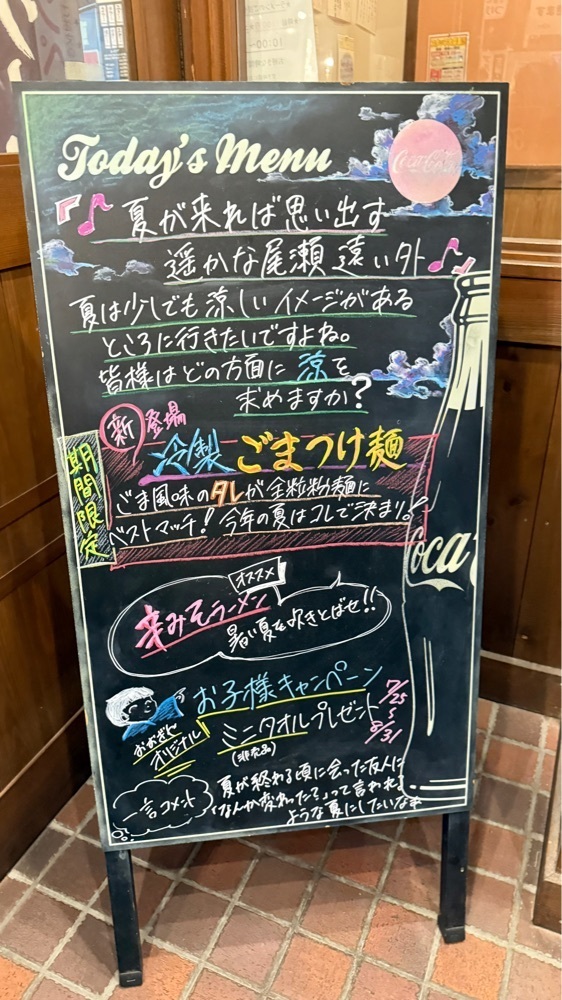 10:00～
Today's Menu
Coca-Cola
夏が来れば思い出す
遥かな尾瀬 遠い外
夏は少しでも涼しいイメージがある
ところに行きたいですよね。
皆様はどの方面に 涼を
求めますか?
新登場
期間限定
冷製 ごまつけ麺
ごま風味のタレが全粒粉麺に
ベストマッチ! 今年の夏はコレで決まり。!
Coca
オススメ
辛みそラーメン
暑い夏を吹きとばせ!!
お子様キャンペーン
おおぎん
オリジナル
ミニタオルプレゼント
(非売品)
7/25
〜
8/31
一言コメント
夏が終わる頃に会った友人に
「なんか変わった?」って言われる
ような夏にしたいなぁ